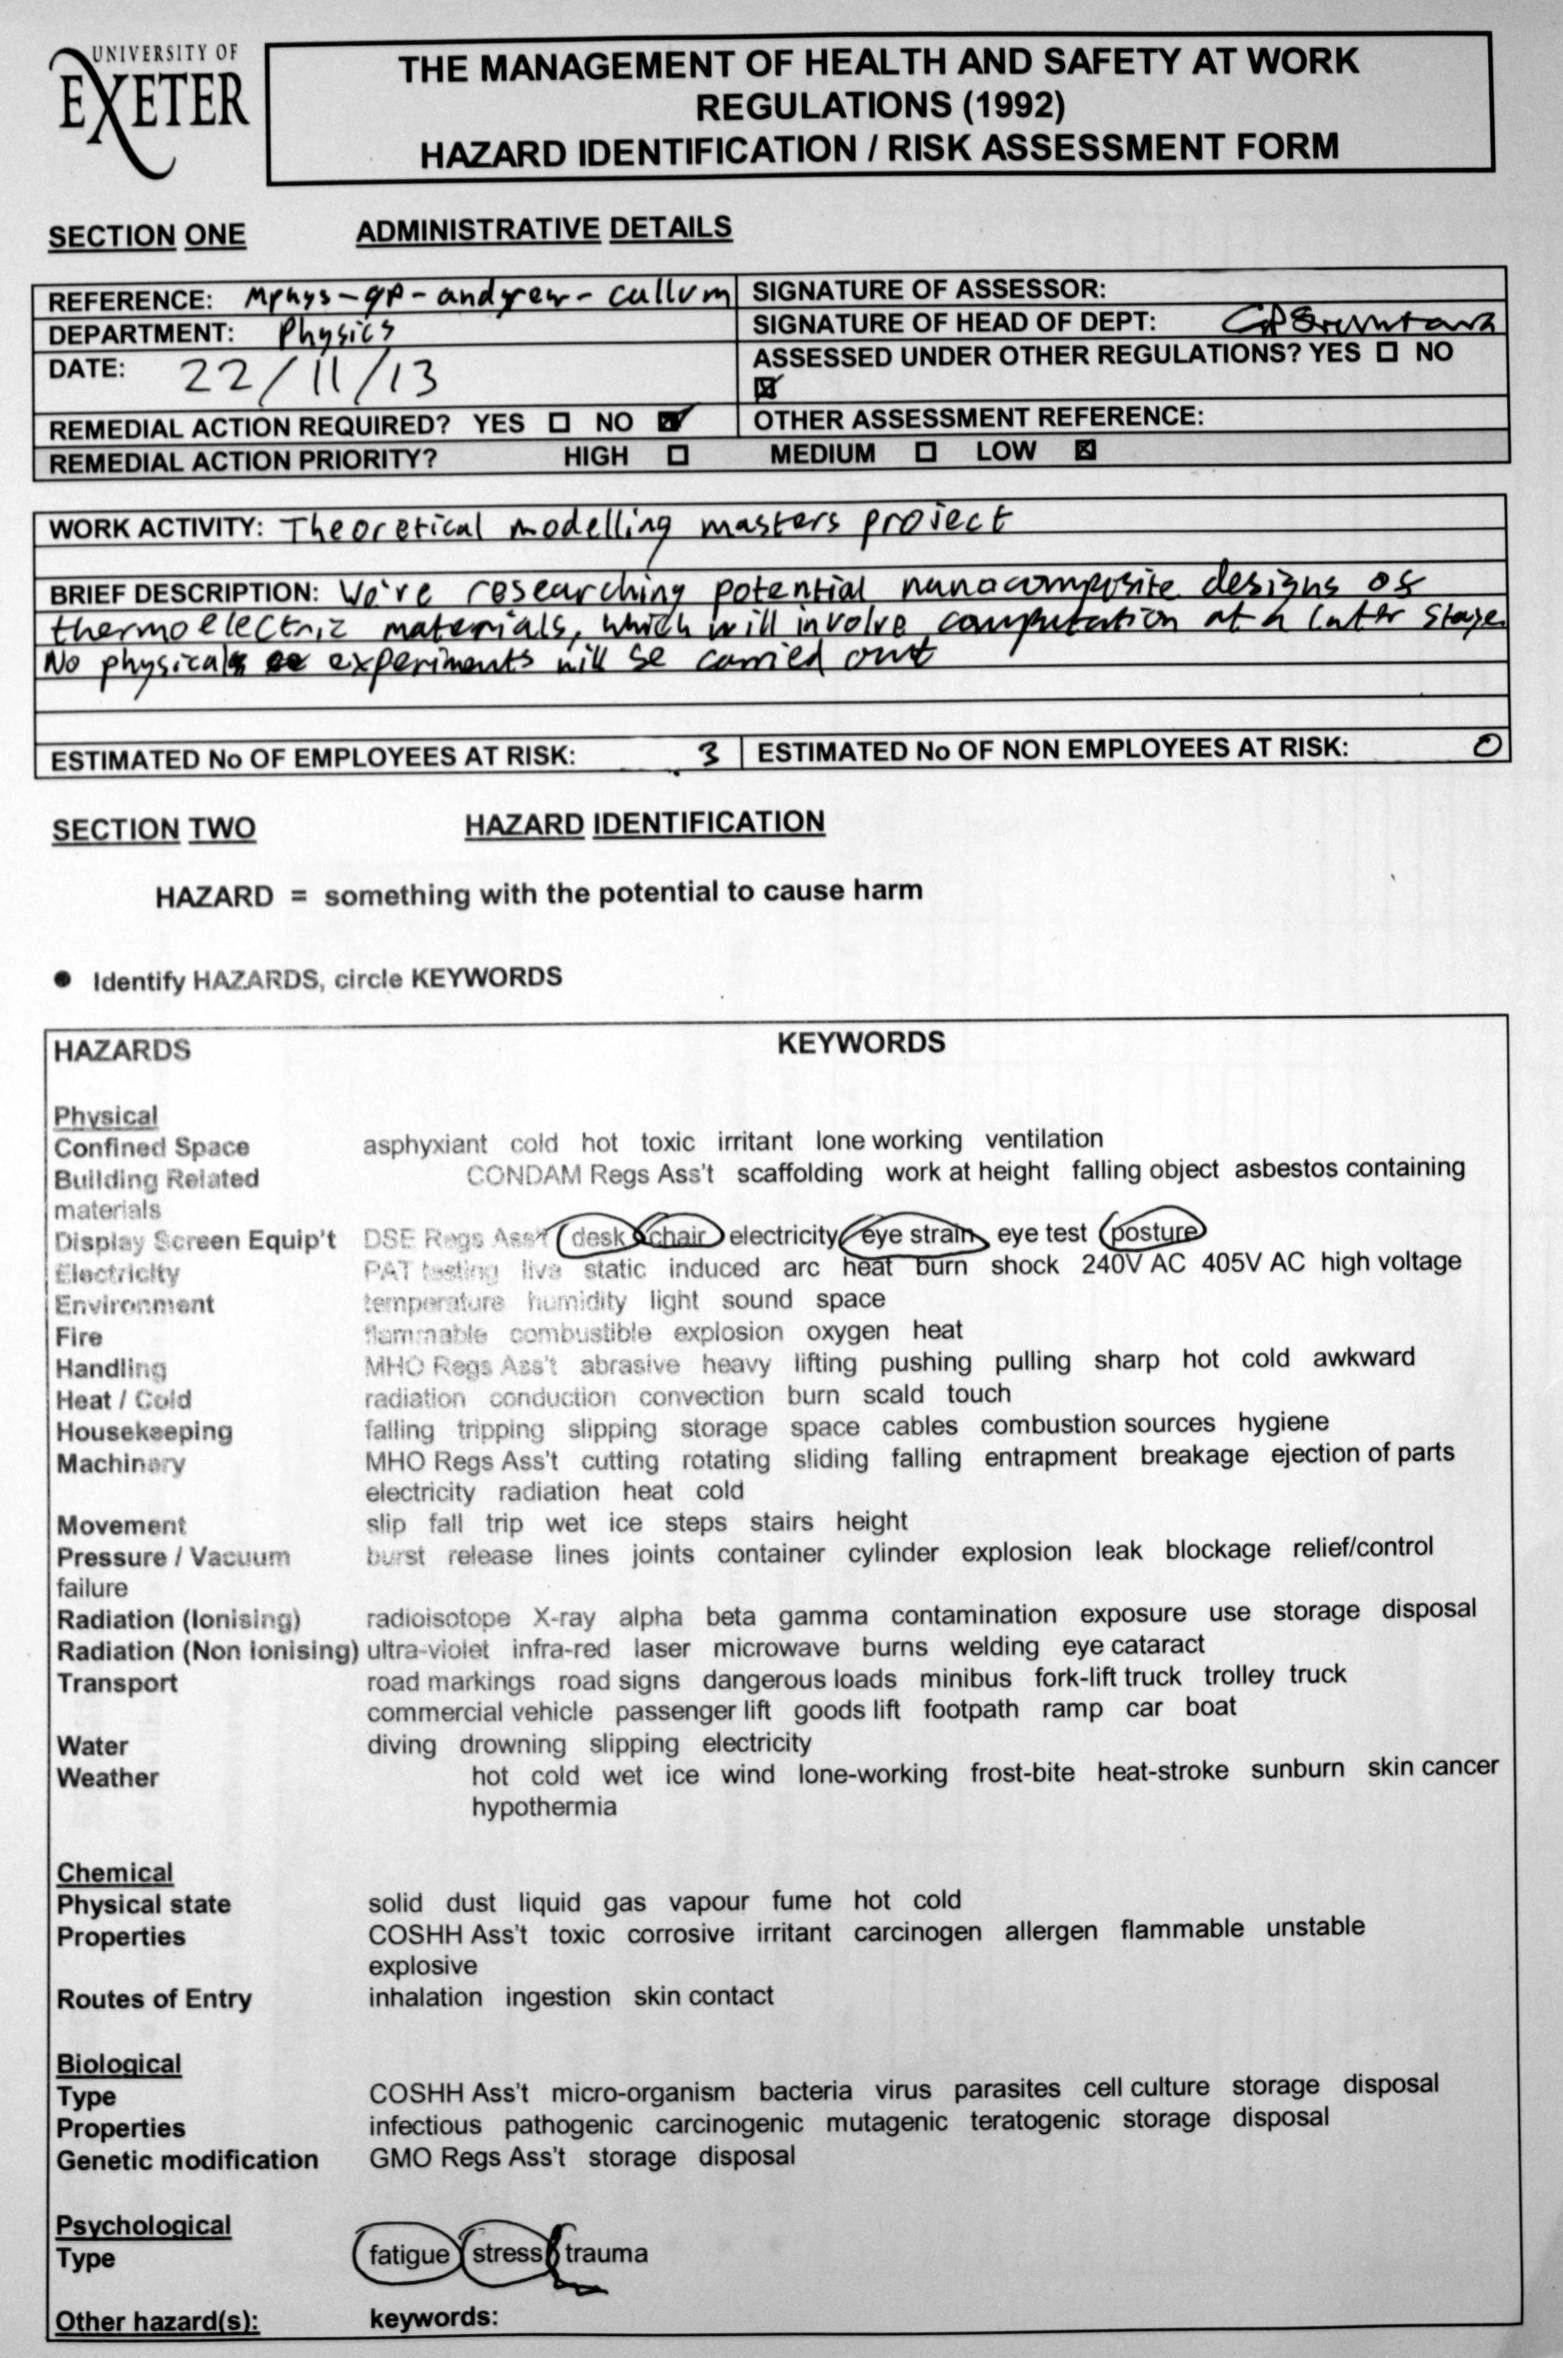 UNIVERSITY OF
EXETER
THE MANAGEMENT OF HEALTH AND SAFETY AT WORK
REGULATIONS (1992)
HAZARD IDENTIFICATION / RISK ASSESSMENT FORM
SECTION ONE ADMINISTRATIVE DETAILS
REFERENCE: Mphys-qp-andrew-cullum SIGNATURE OF ASSESSOR:
DEPARTMENT: Physics SIGNATURE OF HEAD OF DEPT:
DATE: 22/11/13 ASSESSED UNDER OTHER REGULATIONS? YES ☐ NO
☒
REMEDIAL ACTION REQUIRED? YES ☐ NO ☒ OTHER ASSESSMENT REFERENCE:
REMEDIAL ACTION PRIORITY? HIGH ☐ MEDIUM ☐ LOW ☒
WORK ACTIVITY: Theoretical modelling masters project
BRIEF DESCRIPTION: We're researching potential nanocomposite designs of
thermoelectric materials, which will involve computation at a later stage.
No physical experiments will be carried out
ESTIMATED No OF EMPLOYEES AT RISK: 3 ESTIMATED No OF NON EMPLOYEES AT RISK: 0
SECTION TWO HAZARD IDENTIFICATION
HAZARD = something with the potential to cause harm
● Identify HAZARDS, circle KEYWORDS
HAZARDS KEYWORDS
Physical
Confined Space asphyxiant cold hot toxic irritant lone working ventilation
Building Related CONDAM Regs Ass't scaffolding work at height falling object asbestos containing
materials
Display Screen Equip't DSE Regs Ass't desk chair electricity eye strain eye test posture
Electricity PAT testing live static induced arc heat burn shock 240V AC 405V AC high voltage
Environment temperature humidity light sound space
Fire flammable combustible explosion oxygen heat
Handling MHO Regs Ass't abrasive heavy lifting pushing pulling sharp hot cold awkward
Heat / Cold radiation conduction convection burn scald touch
Housekeeping falling tripping slipping storage space cables combustion sources hygiene
Machinery MHO Regs Ass't cutting rotating sliding falling entrapment breakage ejection of parts
electricity radiation heat cold
Movement slip fall trip wet ice steps stairs height
Pressure / Vacuum burst release lines joints container cylinder explosion leak blockage relief/control
failure
Radiation (Ionising) radioisotope X-ray alpha beta gamma contamination exposure use storage disposal
Radiation (Non Ionising) ultra-violet infra-red laser microwave burns welding eye cataract
Transport road markings road signs dangerous loads minibus fork-lift truck trolley truck
commercial vehicle passenger lift goods lift footpath ramp car boat
Water diving drowning slipping electricity
Weather hot cold wet ice wind lone-working frost-bite heat-stroke sunburn skin cancer
hypothermia
Chemical
Physical state solid dust liquid gas vapour fume hot cold
Properties COSHH Ass't toxic corrosive irritant carcinogen allergen flammable unstable
explosive
Routes of Entry inhalation ingestion skin contact
Biological
Type COSHH Ass't micro-organism bacteria virus parasites cell culture storage disposal
Properties infectious pathogenic carcinogenic mutagenic teratogenic storage disposal
Genetic modification GMO Regs Ass't storage disposal
Psychological
Type fatigue stress trauma
Other hazard(s): keywords: